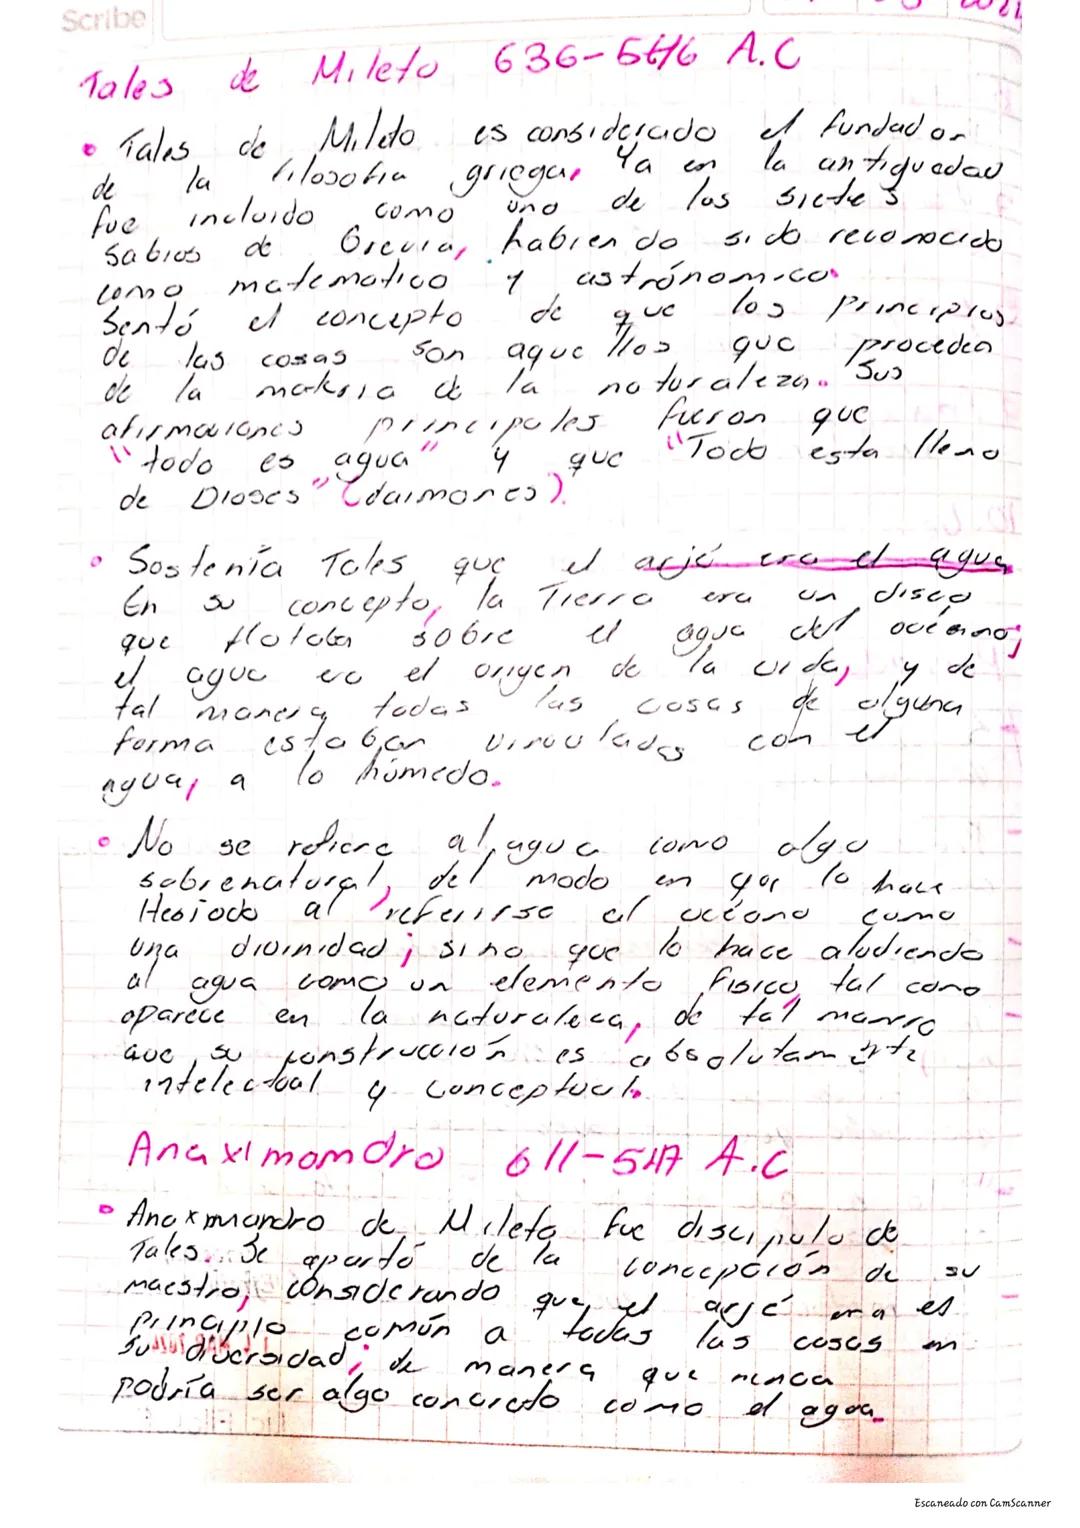 Scribe
Tales de Mileto 636-546 A.C
• Tales de Mileto es considerado el fundador
de la filosofia griega, Ya en la antiguedad
fue incluido como uno de los siete s
sabios de Grecia, habiendo sido reconocido
como matematico y astrónomico.
Sentó el concepto de que los principios
de las cosas son aquellos que proceden
de la materia de la naturaleza. Sus
afirmaciones principales fueron que
"todo es agua" y que "Todo esta lleno
de Dioses" (daimones).
• Sostenía Tales que el arjé era el agua
En su concepto, la Tierra era un disco
que flotaba sobre el agua del océano;
el agua era el origen de la vida, y de
tal manera todas las cosas de alguna
forma estaban vinculadas con el
agua, a lo húmedo.
• No se refiere al agua como algo
sobrenatural, del modo en que lo hace
Hesiodo al referirse al océano como
una divinidad; sino que lo hace aludiendo
al agua como un elemento fisico, tal como
aparece en la naturaleza, de tal manera
que su construcción es absolutamente
intelectual y conceptual.
Anaximandro 611-547 A.C
• Anaximandro de Mileto fue discipulo de
Tales. Se apartó de la concepción de su
maestro, considerando que el arjé era el
Principio común a todas las cosas en
su diversidad; de manera que nunca
podría ser algo concreto como el agua.
Escaneado con CamScanner